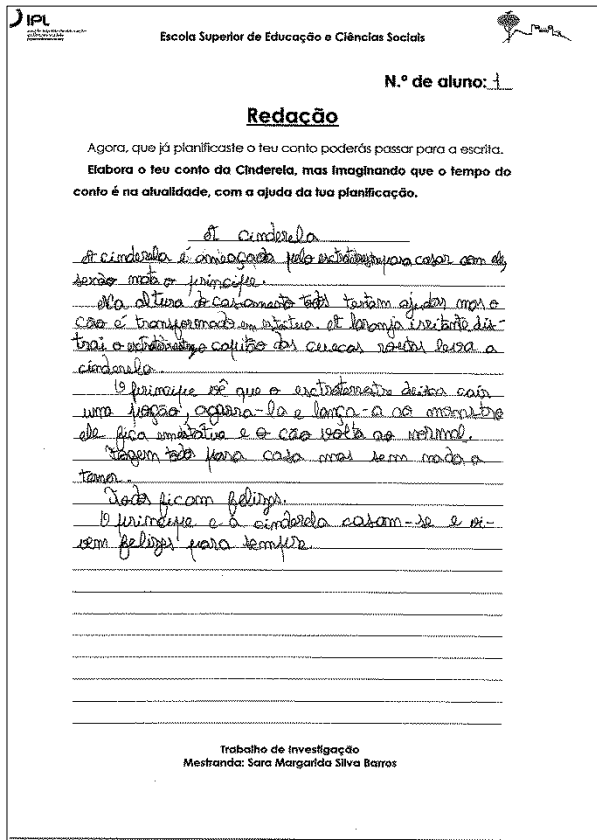 IPL
Escola Superior de Educação e Ciências Sociais
N.º de aluno: 1
Redação
Agora, que já planificaste o teu conto poderás passar para a escrita.
Elabora o teu conto da Cinderela, mas imaginando que o tempo do
conto é na atualidade, com a ajuda da tua planificação.
A cinderela
A cinderela é ameaçada pelo para casar com ele,
senão mata o principe.
Na altura do casamento todos tentam ajudar mas o
cão é transformado em estatua. A laranja irritante dis-
trai o capitão das cuecas rotas leva a
cinderela.
O principe vê que o esctraterrestre deixa cair
uma poção, agarra-la e lança-a ao monstro
ele fica e o cão volta ao normal.
Fogem todos para casa mas sem nada a
temer.
Todos ficam felizes.
O principe e a cinderela casam-se e vi-
vem felizes para sempre.
Trabalho de Investigação
Mestranda: Sara Margarida Silva Barros